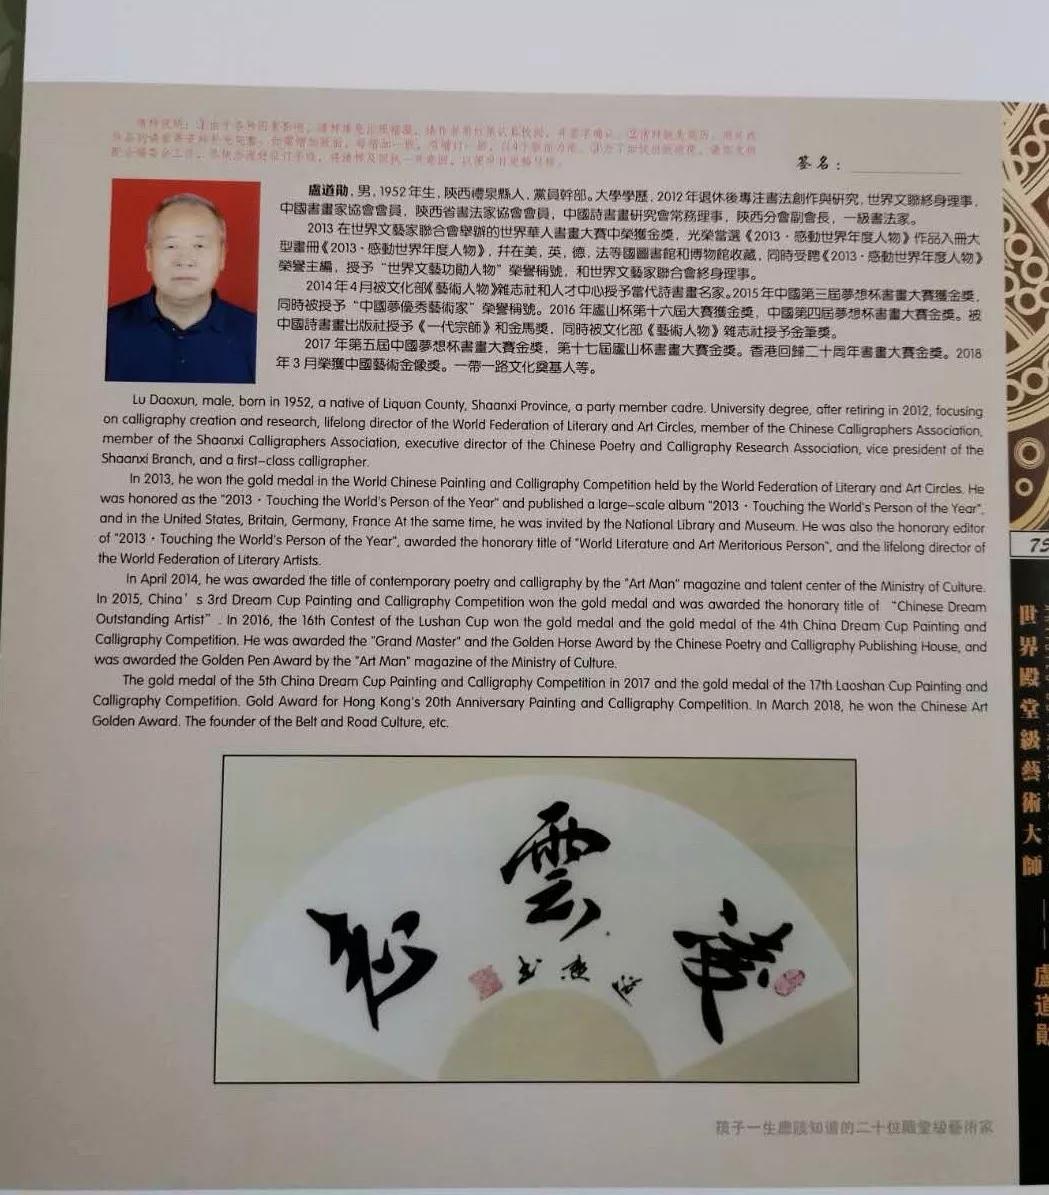 簽名：
盧道勛，男，1952年生，陝西禮泉縣人，黨員幹部。大學學歷，2012年退休後專注書法創作與研究，世界文聯終身理事，
中國書畫家協會會員，陝西省書法家協會會員，中國詩書畫研究會常務理事，陝西分會副會長，一級書法家。
2013在世界文藝家聯合會舉辦的世界華人書畫大賽中榮獲金獎，光榮當選《2013·感動世界年度人物》作品入冊大
型畫冊《2013·感動世界年度人物》，幷在美，英，德，法等國圖書館和博物館收藏，同時受聘《2013·感動世界年度人物》
榮譽主編，授予“世界文藝功勛人物”榮譽稱號，和世界文藝家聯合會終身理事。
2014年4月被文化部《藝術人物》雜志社和人才中心授予當代詩書畫名家。2015年中國第三屆夢想杯書畫大賽獲金獎，
同時被授予“中國夢優秀藝術家”榮譽稱號。2016年廬山杯第十六屆大賽獲金獎，中國第四屆夢想杯書畫大賽金獎。被
中國詩書畫出版社授予《一代宗師》和金馬獎，同時被文化部《藝術人物》雜志社授予金筆獎。
2017年第五屆中國夢想杯書畫大賽金獎，第十七屆廬山杯書畫大賽金獎。香港回歸二十周年書畫大賽金獎。2018
年3月榮獲中國藝術金像獎。一帶一路文化奠基人等。
Lu Daoxun, male, born in 1952, a native of Liquan County, Shaanxi Province, a party member cadre. University degree, after retiring in 2012, focusing
on calligraphy creation and research, lifelong director of the World Federation of Literary and Art Circles, member of the Chinese Calligraphers Association,
member of the Shaanxi Calligraphers Association, executive director of the Chinese Poetry and Calligraphy Research Association, vice president of the
Shaanxi Branch, and a first-class calligrapher.
In 2013, he won the gold medal in the World Chinese Painting and Calligraphy Competition held by the World Federation of Literary and Art Circles. He
was honored as the "2013 · Touching the World's Person of the Year" and published a large-scale album "2013 · Touching the World's Person of the Year",
and in the United States, Britain, Germany, France At the same time, he was invited by the National Library and Museum. He was also the honorary editor
of "2013 · Touching the World's Person of the Year", awarded the honorary title of "World Literature and Art Meritorious Person", and the lifelong director of
the World Federation of Literary Artists.
In April 2014, he was awarded the title of contemporary poetry and calligraphy by the "Art Man" magazine and talent center of the Ministry of Culture.
In 2015, China’s 3rd Dream Cup Painting and Calligraphy Competition won the gold medal and was awarded the honorary title of “Chinese Dream
Outstanding Artist”. In 2016, the 16th Contest of the Lushan Cup won the gold medal and the gold medal of the 4th China Dream Cup Painting and
Calligraphy Competition. He was awarded the "Grand Master" and the Golden Horse Award by the Chinese Poetry and Calligraphy Publishing House, and
was awarded the Golden Pen Award by the "Art Man" magazine of the Ministry of Culture.
The gold medal of the 5th China Dream Cup Painting and Calligraphy Competition in 2017 and the gold medal of the 17th Laoshan Cup Painting and
Calligraphy Competition. Gold Award for Hong Kong's 20th Anniversary Painting and Calligraphy Competition. In March 2018, he won the Chinese Art
Golden Award. The founder of the Belt and Road Culture, etc.
雲
孩子一生應該知道的二十位殿堂級藝術家
世界殿堂級藝術大師——盧道勛